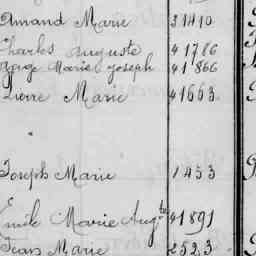 Amand Marie 21410
Charles Auguste 41786
Marie Joseph 41866
Pierre Marie 41663
Joseph Marie 1453
Emile Marie Augte 41891
Jean Marie 2523